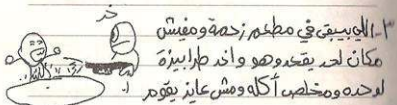 ٣- اللي بيبقى في مطعم زحمة ومفيش
مكان لحد يقعد وهو واخد طرابيزة
لوحده ومخلص أكله ومش عايز يقوم !.